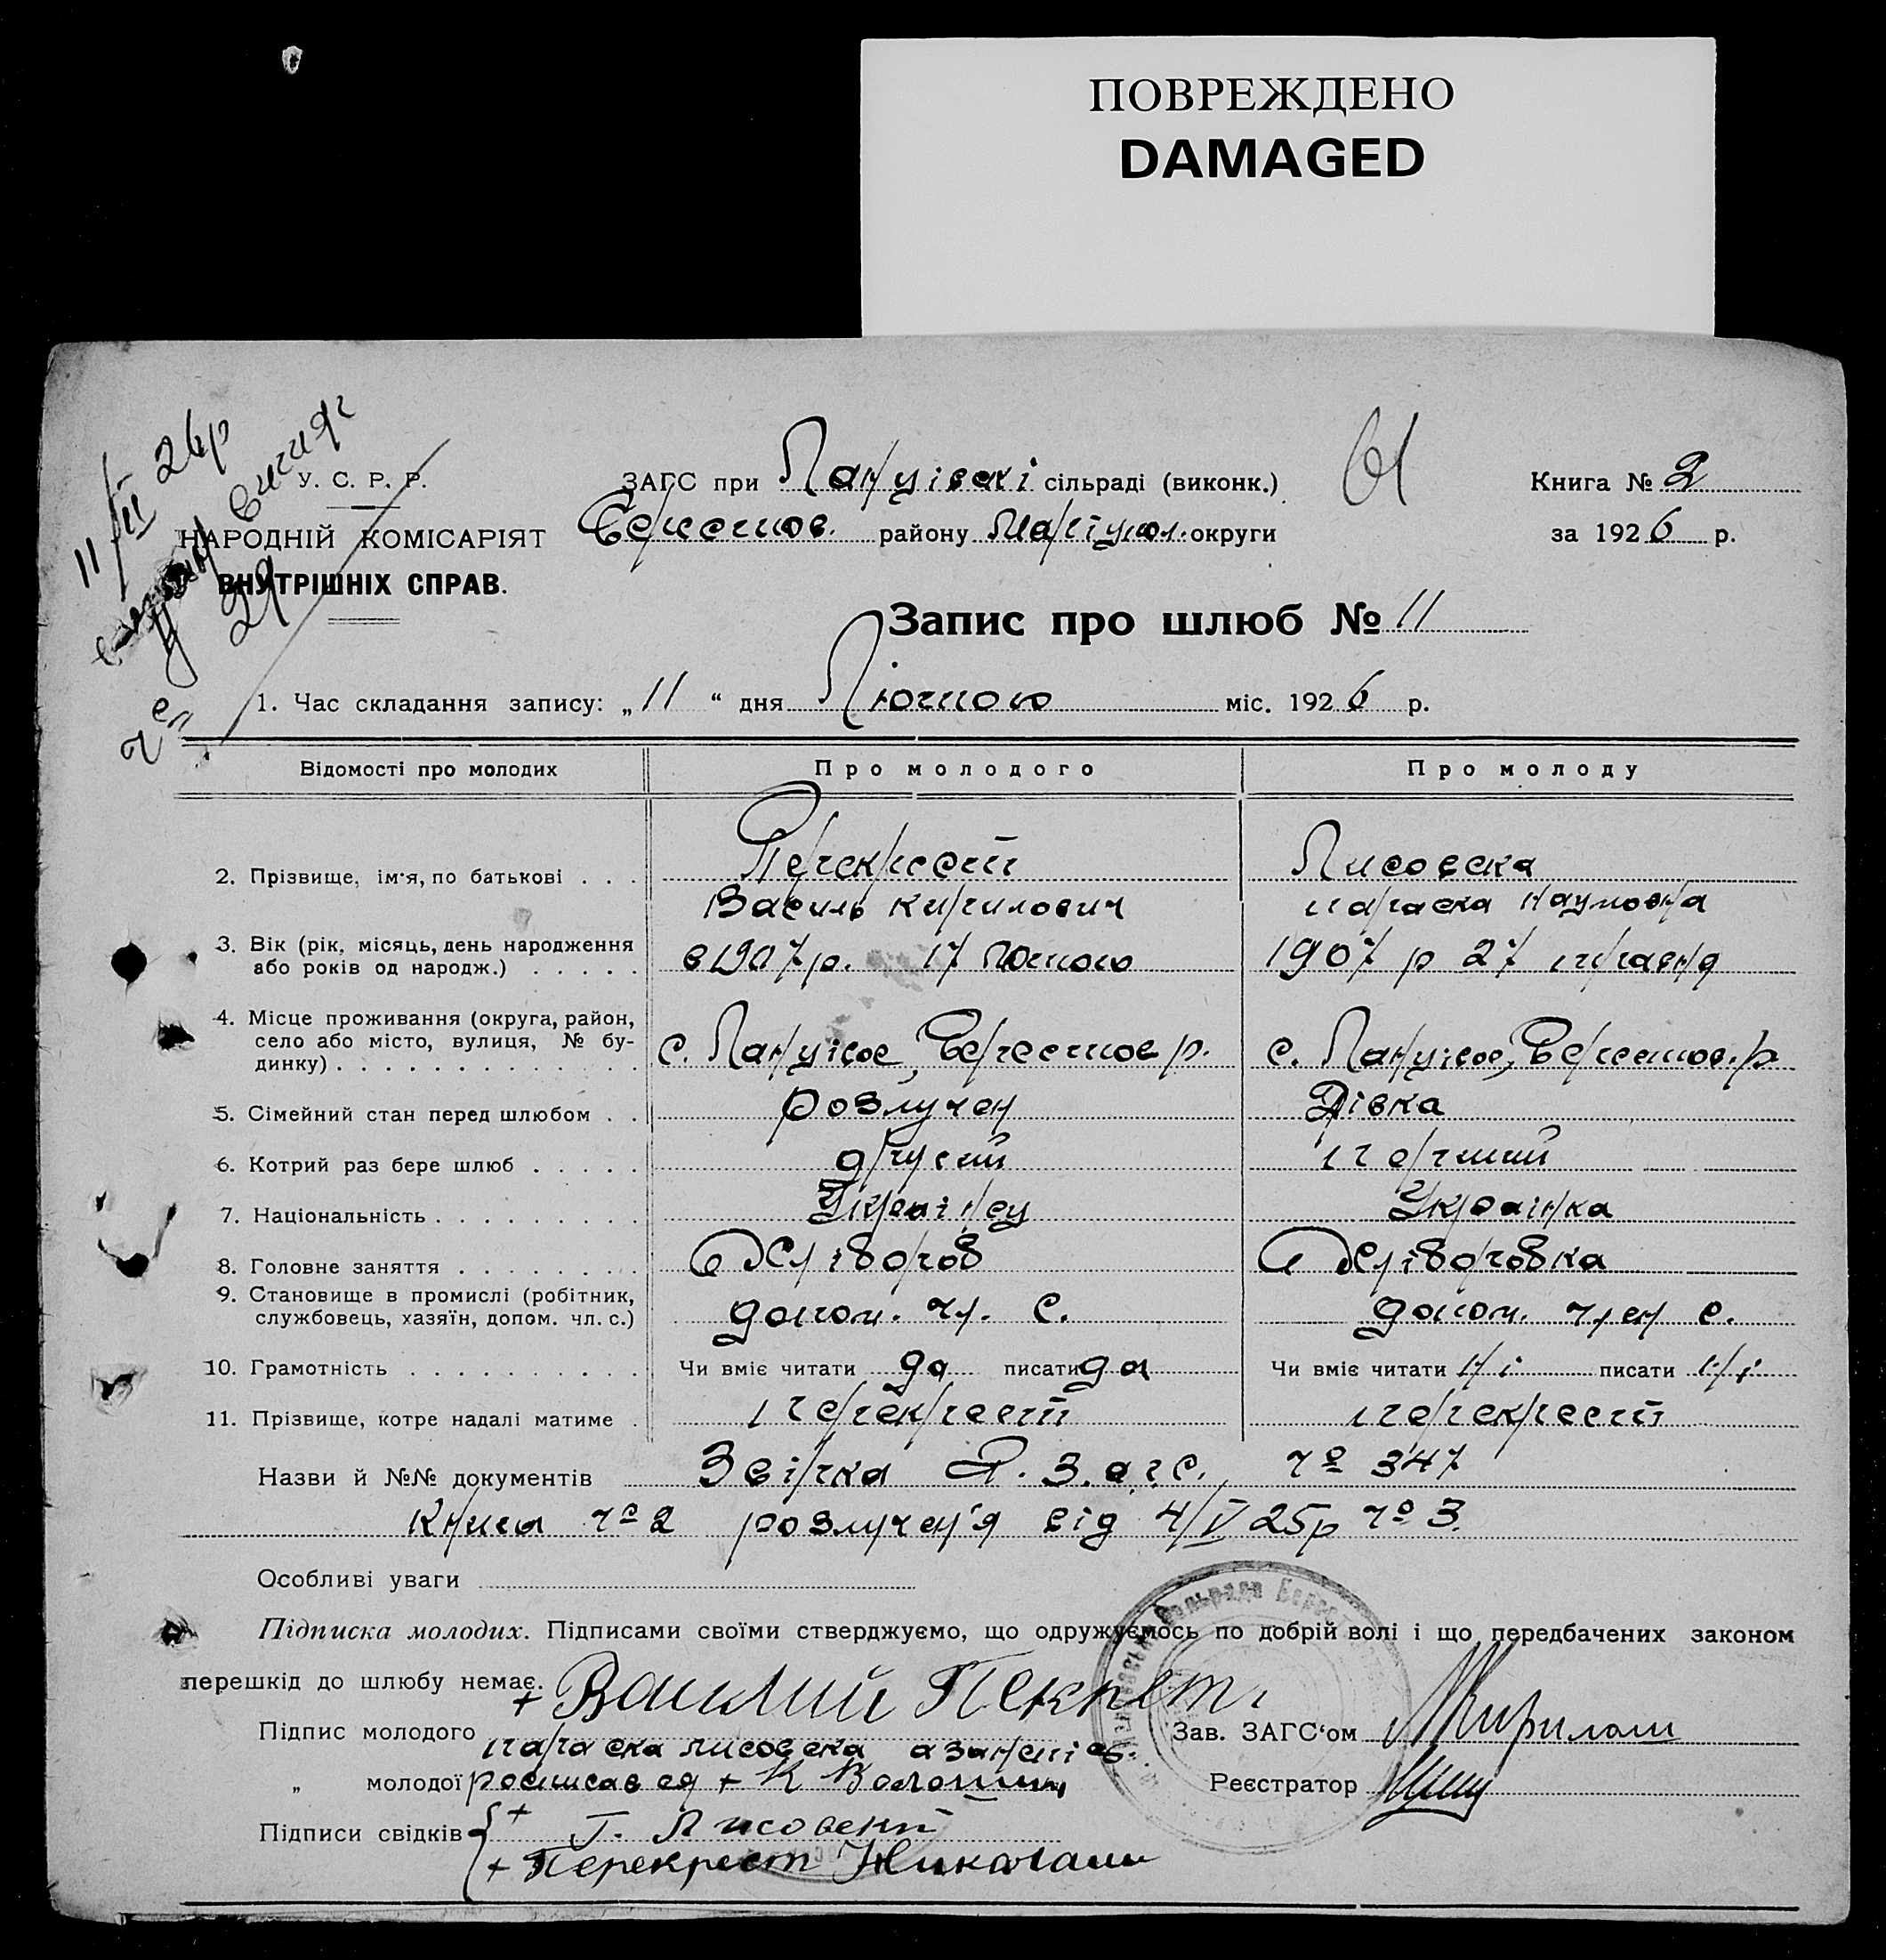 ПОВРЕЖДЕНО
DAMAGED
11/II 26р
У. С. Р. Р.
НАРОДНІЙ КОМІСАРІЯТ
ВНУТРІШНІХ СПРАВ.
ЗАГС при сільраді (виконк.)
району Маріупол. округи
Книга № 2
за 1926 р.
Запис про шлюб № 11
1. Час складання запису: „ 11 “ дня Лютого міс. 1926 р.
Відомості про молодих Про молодого Про молоду
2. Прізвище, ім'я, по батькові . . . Перекрест Лисовска
Василь Кирилович Параска Наумовна
3. Вік (рік, місяць, день народження в 1907 р. 17 Лютого 1907 р 27
або років од народж.) . . . . .
4. Місце проживання (округа, район,
село або місто, вулиця, № бу-
динку) . . . . . . . . . . . . . с. р. с. р
5. Сімейний стан перед шлюбом . . розлучен Дівка
6. Котрий раз бере шлюб . . . . . другий перший
7. Національність . . . . . . . . . Українец Українка
8. Головне заняття . . . . . . . . Хлібороб Хліборобка
9. Становище в промислі (робітник,
службовець, хазяїн, допом. чл. с.) допом. чл. с. допом. член с.
10. Грамотність . . . . . . . . . . Чи вміє читати да писати да Чи вміє читати ні писати ні
11. Прізвище, котре надалі матиме . Перекрест Перекрест
Назви й №№ документів № 347
Книга № 2 розлучен'я від 4/V 25р № 3.
Особливі уваги
Підписка молодих. Підписами своїми стверджуємо, що одружуємось по добрій волі і що передбачених законом
перешкід до шлюбу немає.
Підпис молодого + Василий Зав. ЗАГС‘ом
Параска Лисовска
„ молодої росписався + К Реєстратор
Підписи свідків + Г. Лисовский
+ Перекрест